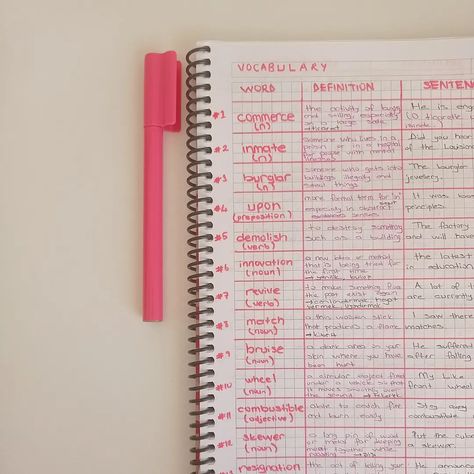 VOCABULARY
WORD DEFINITION SENTEN
#1 commerce (n) the activity of buying and selling, especially on a large scale → ticaret He is eng
#2 inmate (n) someone who lives in a prison or in a hospital for people with mental Did you hear of the Louisian
#3 burglar (n) someone who gets into buildings illegally and steal things The burglar jewellery.
#4 upon (preposition) more formal term for "on" especially in abstract senses It was principles.
#5 demolish (verb) to destroy something such as a building The factory and will have
#6 innovation (noun) a new idea or method that is being tried for the first time the latest in education
#7 revive (verb) to make something from the past exist again A lot of are current
#8 match (noun) a thin wooden stick that produces a flame → kibrit I saw there matches.
#9 bruise (noun) a dark area in your skin where you have been hurt He suffered after falling
#10 wheel (noun) a circular object fixed under a vehicle so that it moves smoothly over the ground My front wheel
#11 combustible (adjective) able to catch fire and burn easily Stay away combustible
#12 skewer (noun) a long pin of wood or metal for keeping meat together while Put the cube a skewer.
resignation the act of telling your He